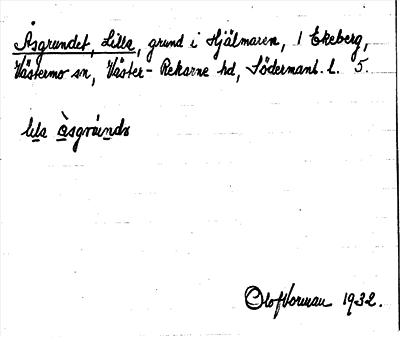 Åsgrundet, Lilla, grund i Hjälmaren, 1 Ekeberg,
Västermo sn, Väster-Rekarne hd, Södermanl. l. 5.
lila àsgrúndə
Olof Norman 1932.